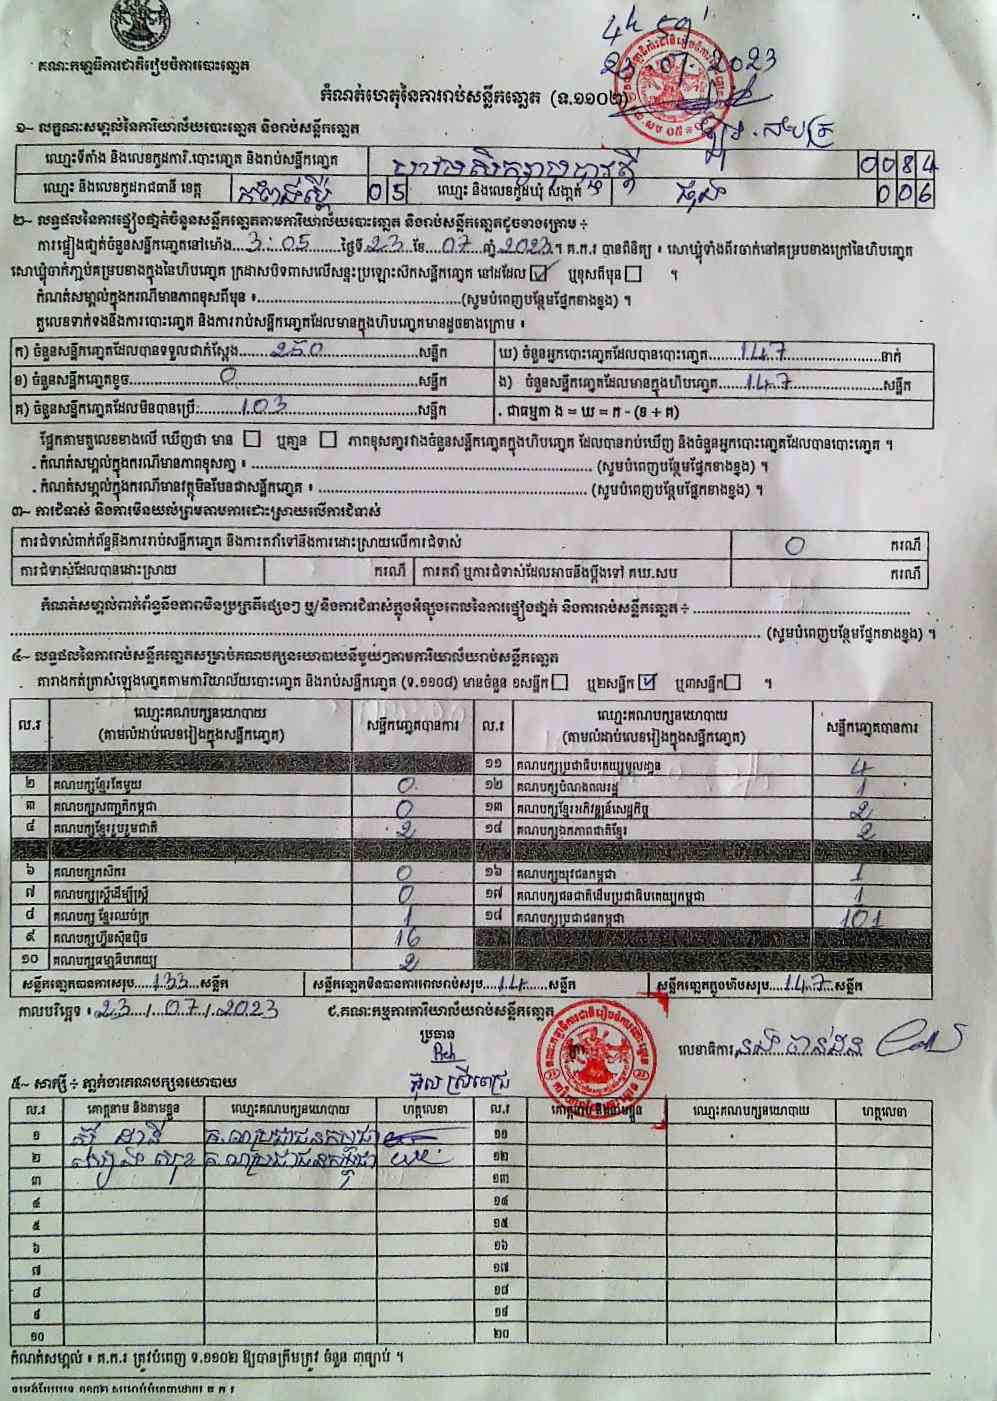 4h 59'
23.07.2023
គណៈកម្មាធិការជាតិរៀបចំការបោះឆ្នោត
កំណត់ហេតុនៃការរាប់សន្លឹកឆ្នោត (ទ.១១០២)
១~ លក្ខណៈសម្គាល់នៃការិយាល័យបោះឆ្នោត និងរាប់សន្លឹកឆ្នោត
ឈ្មោះទីតាំង និងលេខកូដការិ.បោះឆ្នោត និងរាប់សន្លឹកឆ្នោត 0084
ឈ្មោះ និងលេខកូដរាជធានី ខេត្ត កំពង់ស្ពឺ 05 ឈ្មោះ និងលេខកូដឃុំ សង្កាត់ 006
២~ លទ្ធផលនៃការផ្ទៀងផ្ទាត់ចំនួនសន្លឹកឆ្នោតតាមការិយាល័យបោះឆ្នោត និងរាប់សន្លឹកឆ្នោតដូចខាងក្រោម ÷
ការផ្ទៀងផ្ទាត់ចំនួនសន្លឹកឆ្នោតនៅម៉ោង 3:05 ថ្ងៃទី 23 ខែ 07 ឆ្នាំ 2023។ គ.ក.រ បានពិនិត្យ ៖ សោឃ្លុំទាំងពីរចាក់នៅគម្របខាងក្រៅនៃហិបឆ្នោត
សោឃ្លុំចាក់ភ្ជាប់គម្របខាងក្នុងនៃហិបឆ្នោត ក្រដាសបិទពាសលើសន្ទះប្រឡោះសិកសន្លឹកឆ្នោត នៅដដែល ☑ ឬខុសពីមុន ☐ ។
កំណត់សម្គាល់ក្នុងករណីមានភាពខុសពីមុន ៖ (សូមបំពេញបន្ថែមផ្នែកខាងខ្នង) ។
តួលេខទាក់ទងនឹងការបោះឆ្នោត និងការរាប់សន្លឹកឆ្នោតដែលមានក្នុងហិបឆ្នោតមានដូចខាងក្រោម ៖
ក) ចំនួនសន្លឹកឆ្នោតដែលបានទទួលជាក់ស្តែង 250 សន្លឹក ឃ) ចំនួនអ្នកបោះឆ្នោតដែលបានបោះឆ្នោត 147 នាក់
ខ) ចំនួនសន្លឹកឆ្នោតខូច 0 សន្លឹក ង) ចំនួនសន្លឹកឆ្នោតដែលមានក្នុងហិបឆ្នោត 147 សន្លឹក
គ) ចំនួនសន្លឹកឆ្នោតដែលមិនបានប្រើ: 103 សន្លឹក . ជាធម្មតា ង = ឃ = ក - (ខ + គ)
ផ្អែកតាមតួលេខខាងលើ ឃើញថា មាន ☐ ឬគ្មាន ☐ ភាពខុសគ្នារវាងចំនួនសន្លឹកឆ្នោតក្នុងហិបឆ្នោត ដែលបានរាប់ឃើញ និងចំនួនអ្នកបោះឆ្នោតដែលបានបោះឆ្នោត ។
. កំណត់សម្គាល់ក្នុងករណីមានភាពខុសគ្នា ៖ (សូមបំពេញបន្ថែមផ្នែកខាងខ្នង) ។
. កំណត់សម្គាល់ក្នុងករណីមានវត្ថុមិនមែនជាសន្លឹកឆ្នោត ៖ (សូមបំពេញបន្ថែមផ្នែកខាងខ្នង) ។
៣~ ការជំទាស់ និងការមិនយល់ព្រមតាមការដោះស្រាយលើការជំទាស់
ការជំទាស់ពាក់ព័ន្ធនឹងការរាប់សន្លឹកឆ្នោត និងការតវ៉ាទៅនឹងការដោះស្រាយលើការជំទាស់ 0 ករណី
ការជំទាស់ដែលបានដោះស្រាយ ករណី ការតវ៉ា ឬការជំទាស់ដែលអាចនឹងប្តឹងទៅ គឃ.សប ករណី
កំណត់សម្គាល់ពាក់ព័ន្ធនឹងភាពមិនប្រក្រតីផ្សេងៗ ឬ/និងការជំទាស់ក្នុងអំឡុងពេលនៃការផ្ទៀងផ្ទាត់ និងការរាប់សន្លឹកឆ្នោត ÷
(សូមបំពេញបន្ថែមផ្នែកខាងខ្នង) ។
៤~ លទ្ធផលនៃការរាប់សន្លឹកឆ្នោតសម្រាប់គណបក្សនយោបាយនីមួយៗតាមការិយាល័យរាប់សន្លឹកឆ្នោត
តារាងកត់ត្រាសំឡេងឆ្នោតតាមការិយាល័យបោះឆ្នោត និងរាប់សន្លឹកឆ្នោត (ទ.១១០៨) មានចំនួន ១សន្លឹក ☐ ឬ២សន្លឹក ☑ ឬ៣សន្លឹក ☐ ។
ល.រ ឈ្មោះគណបក្សនយោបាយ (តាមលំដាប់លេខរៀងក្នុងសន្លឹកឆ្នោត) សន្លឹកឆ្នោតបានការ ល.រ ឈ្មោះគណបក្សនយោបាយ (តាមលំដាប់លេខរៀងក្នុងសន្លឹកឆ្នោត) សន្លឹកឆ្នោតបានការ
១១ គណបក្សប្រជាធិបតេយ្យមូលដ្ឋាន 4
២ គណបក្សខ្មែរតែមួយ 0 ១២ គណបក្សបំណងពលរដ្ឋ 1
៣ គណបក្សសញ្ជាតិកម្ពុជា 0 ១៣ គណបក្សខ្មែរអភិវឌ្ឍន៍សេដ្ឋកិច្ច 2
៤ គណបក្សខ្មែររួបរួមជាតិ 2 ១៤ គណបក្សឯកភាពជាតិខ្មែរ 2
៦ គណបក្សកសិករ 0 ១៦ គណបក្សយុវជនកម្ពុជា 1
៧ គណបក្សស្ត្រីដើម្បីស្ត្រី 0 ១៧ គណបក្សជនជាតិដើមប្រជាធិបតេយ្យកម្ពុជា 1
៨ គណបក្ស ខ្មែរឈប់ក្រ 1 ១៨ គណបក្សប្រជាជនកម្ពុជា 101
៩ គណបក្សហ៊្វុនស៊ិនប៉ិច 16
១០ គណបក្សធម្មាធិបតេយ្យ 2
សន្លឹកឆ្នោតបានការសរុប 133 សន្លឹក សន្លឹកឆ្នោតមិនបានការពេលរាប់សរុប 14 សន្លឹក សន្លឹកឆ្នោតក្នុងហិបសរុប 147 សន្លឹក
កាលបរិច្ឆេទ ៖ 23/07/2023 ៩.គណៈកម្មការការិយាល័យរាប់សន្លឹកឆ្នោត
ប្រធាន
លេខាធិការ
៥~ សាក្សី ÷ ភ្នាក់ងារគណបក្សនយោបាយ
ល.រ គោត្តនាម និងនាមខ្លួន ឈ្មោះគណបក្សនយោបាយ ហត្ថលេខា ល.រ គោត្តនាម និងនាមខ្លួន ឈ្មោះគណបក្សនយោបាយ ហត្ថលេខា
១ គ.ណប្រជាជនកម្ពុជា ១១
២ គ.ណប្រជាជនកម្ពុជា ១២
៣ ១៣
៤ ១៤
៥ ១៥
៦ ១៦
៧ ១៧
៨ ១៨
៩ ១៩
១០ ២០
កំណត់សម្គាល់ ៖ គ.ក.រ ត្រូវបំពេញ ទ.១១០២ ឱ្យបានត្រឹមត្រូវ ចំនួន ៣ច្បាប់ ។